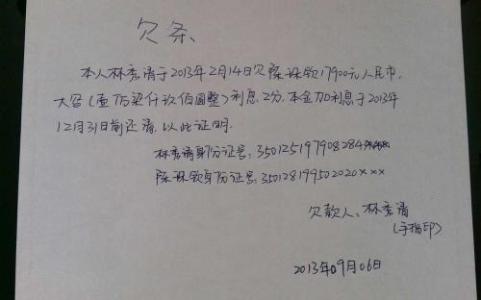 欠条
本人林秀清于2013年2月14日欠陈珠钗17900元人民币.
大写(壹万柒仟玖佰圆整)利息2分.本金加利息于2013年
12月31日前还清.以此证明.
林秀清身份证号:350125197908284
陈珠钗身份证号:350128199502020×××
欠款人:林秀清
(手指印)
2013年09月06日